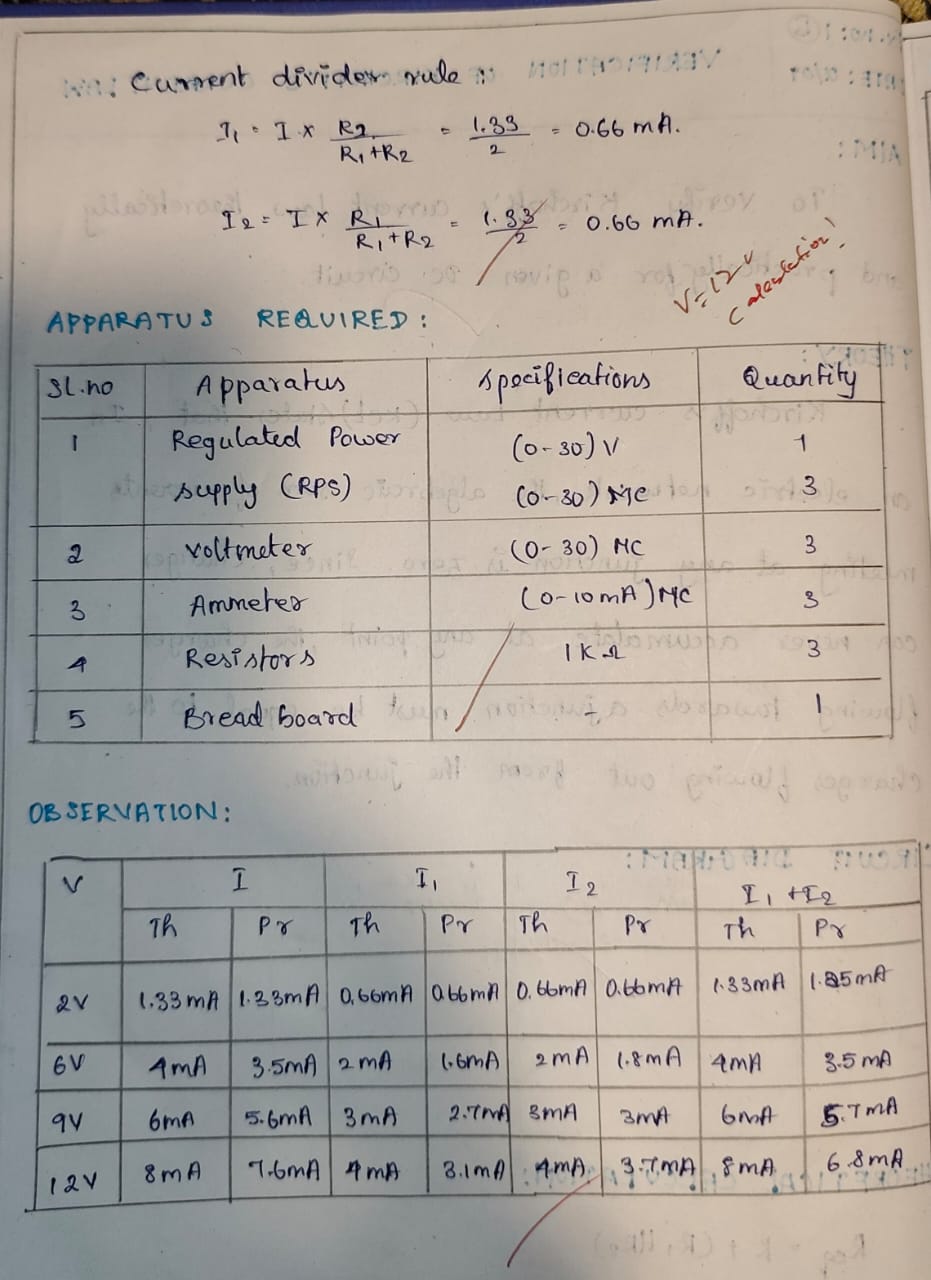 Current divider rule :
I₁ = I × R2 / R1+R2 = 1.33 / 2 = 0.66 mA.
I2 = I × R1 / R1+R2 = 1.33 / 2 = 0.66 mA.
V=12V
Calculation!
APPARATUS REQUIRED:
Sl.no Apparatus Specifications Quantity
1 Regulated Power (0-30) V 1
supply (RPS) (0-30) MC 3
2 Voltmeter (0-30) MC 3
3 Ammeter (0-10mA) MC 3
4 Resistors 1KΩ 3
5 Bread board - 1
OBSERVATION:
V I I₁ I2 I₁+I2
Th Pr Th Pr Th Pr Th Pr
2V 1.33mA 1.33mA 0.66mA 0.66mA 0.66mA 0.66mA 1.33mA mA
6V 4mA 3.5mA 2mA 1.6mA 2mA 1.8mA 4mA 3.5mA
9V 6mA 5.6mA 3mA 2.7mA 3mA 3mA 6mA 5.7mA
12V 8mA 7.6mA 4mA 3.1mA 4mA 3.7mA 8mA 6.8mA